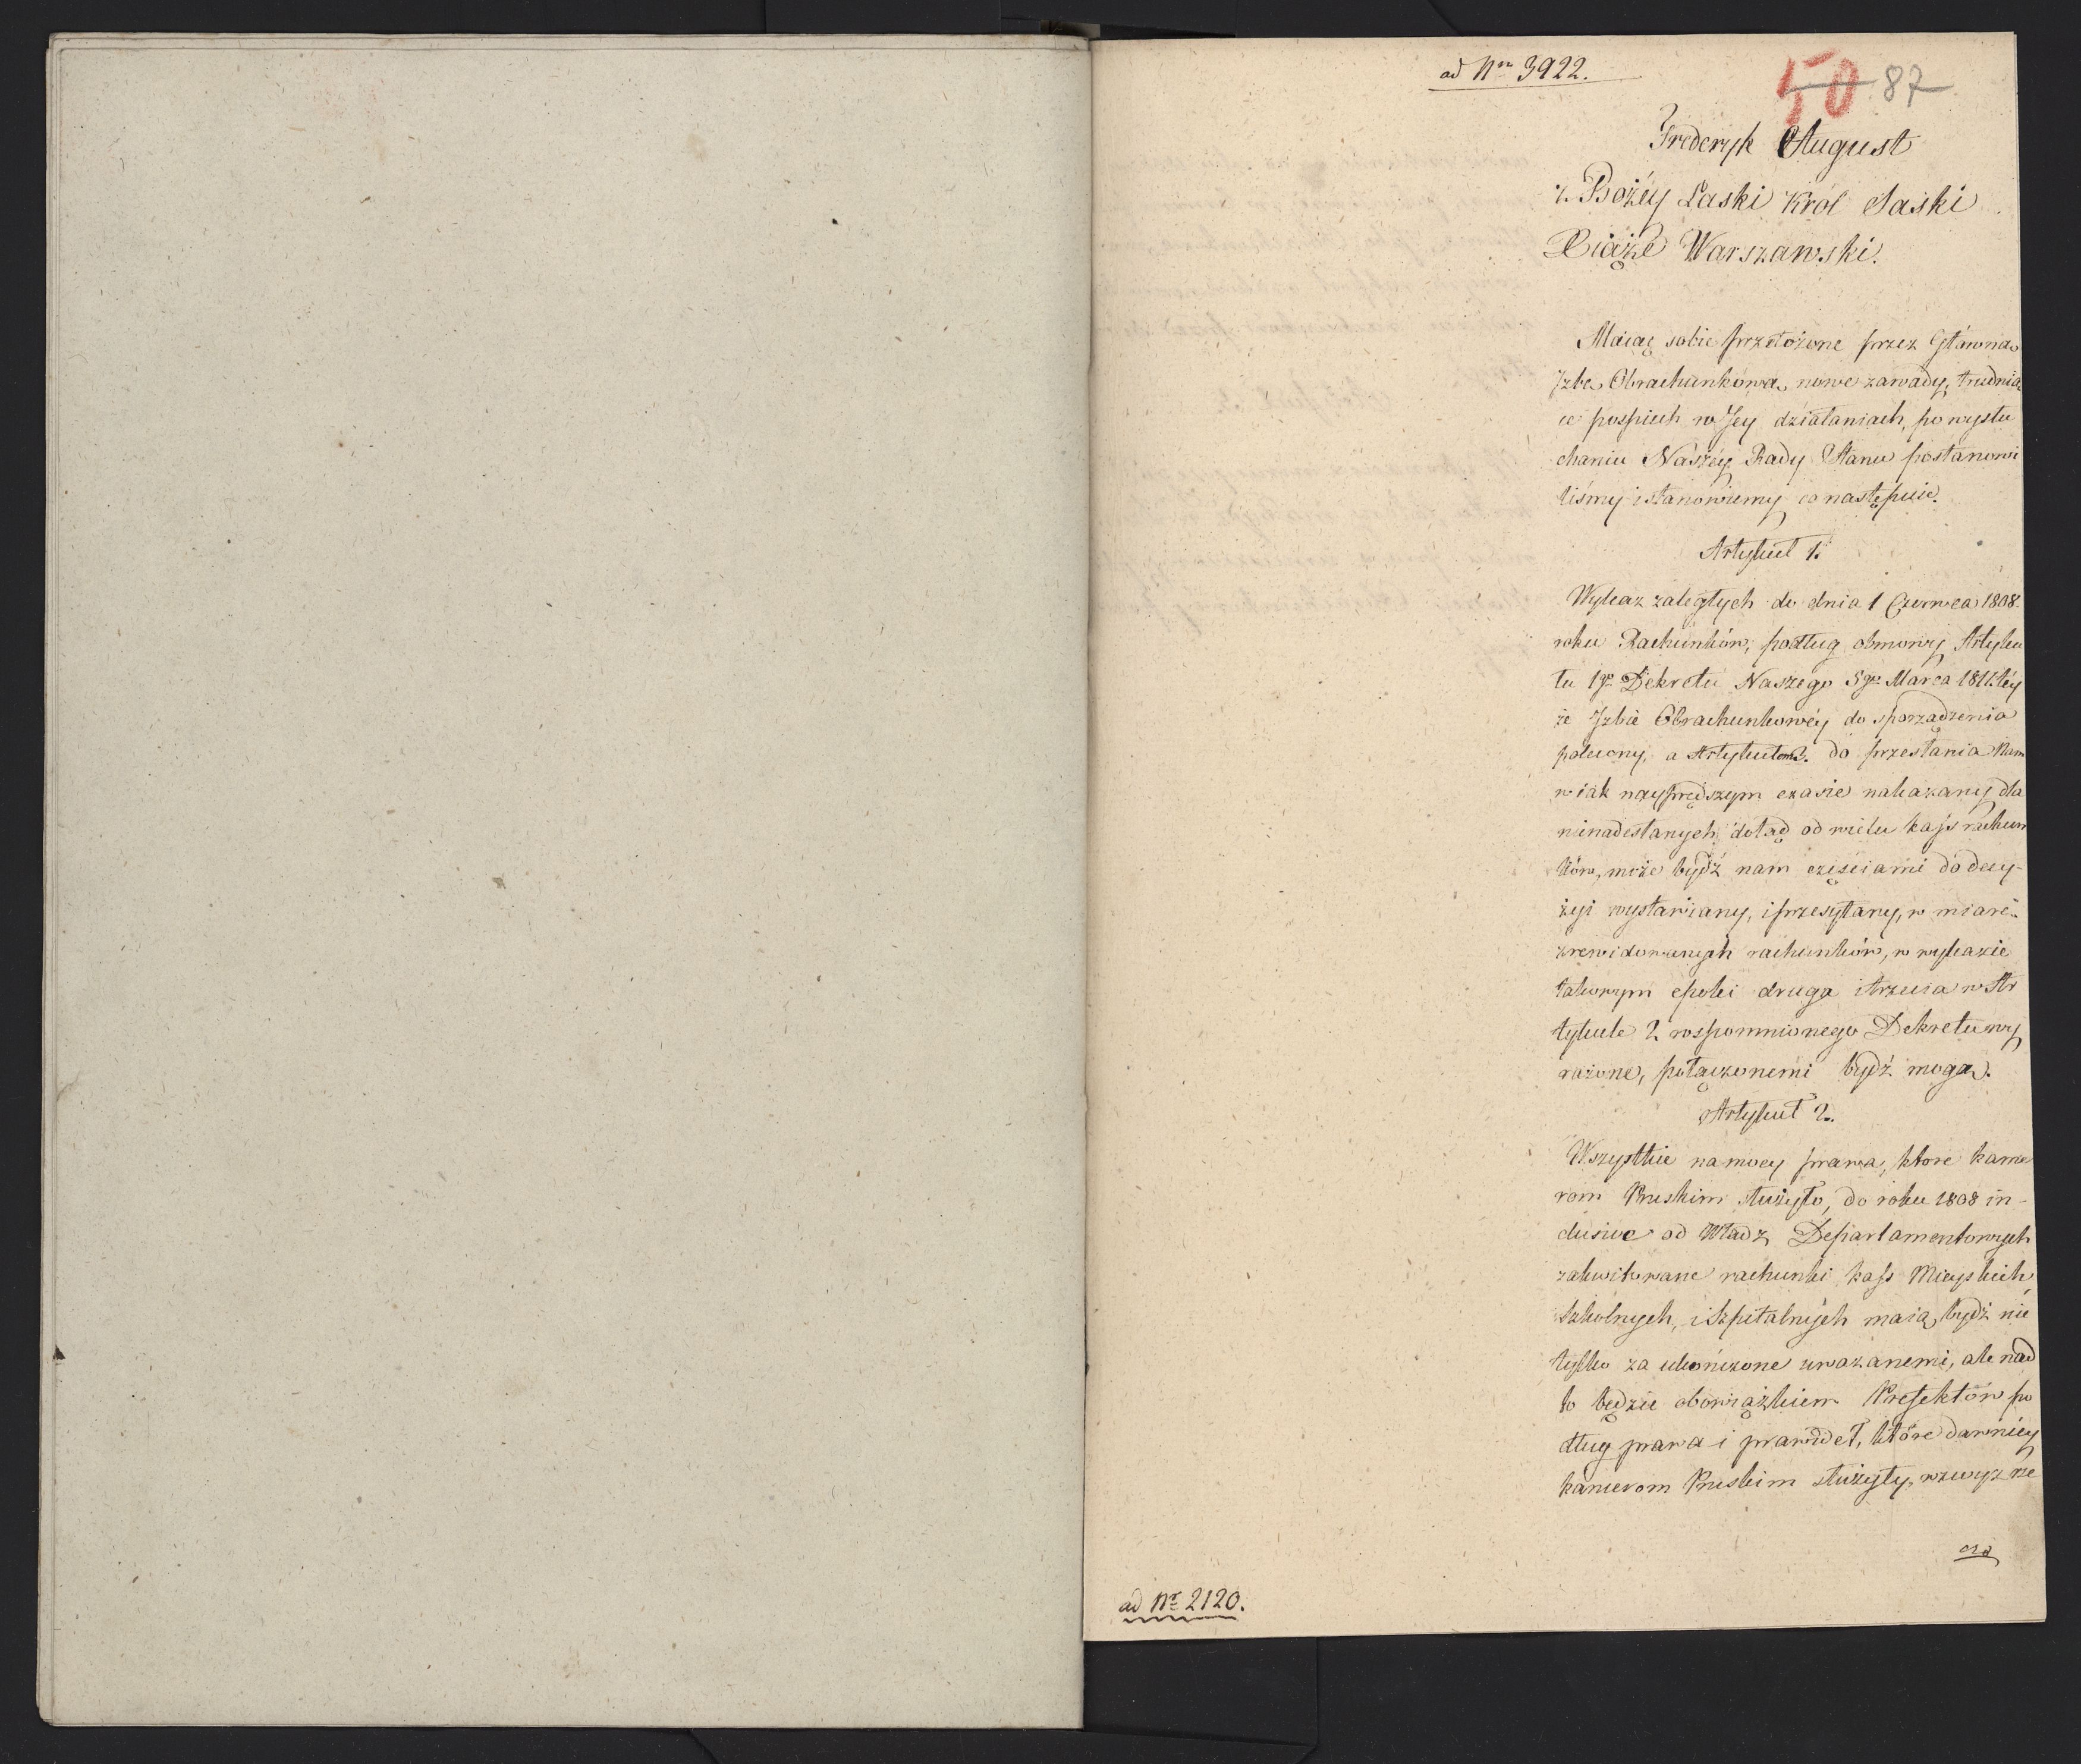 ad Nrm 3922.
50 87
Frideryk August
z Bożéy Łaski Król Saski
Xiąże Warszawski.
Maiąc sobie przełożone przez Główną
Izbę Obrachunkową nowe zawady, trudnią
ce pospiech w Jey działaniach, po wysłu
chaniu Naszéy Rady Stanu postanowi
liśmy i stanowiemy co następuie.
Artykuł 1.
Wykaz zaległych do dnia 1 Czerwca 1808.
roku Rachunków, podług obmowy Artyku
łu 1go Dekretu Naszego 5go Marca 1811. téy
że Izbie Obrachunkowéy do sporządzenia
polecony, a Artykułem 2. do przesłania Nam
w iak nayprędszym czasie nakazany, dla
nienadesłanych dotąd od wielu kass rachun
ków, może bydź nam częściami do decy-
zyi wystawiany, i przesyłany, w miarę
zrewidowanych rachunków, w wykazie
takowym epoki druga i trzecia w Ar
tykule 2 wspomnionego Dekretu wy
rażone, połączonemi bydź mogą.
Artykuł 2.
Wszystkie na mocy prawa, które kame
rom Pruskim służyło, do roku 1808 in-
clusive od Władz Departamentowych
zakwitowane rachunki kass Mieyskich,
Szkolnych, i Szpitalnych maią bydź nie
tylko za ukończone uważanemi, ale nad
to będzie obowiązkiem Prefektów po
dług prawa i prawideł, które dawniey
kamerom Pruskim służyły, wzwyż rze
ad Nr 2120.